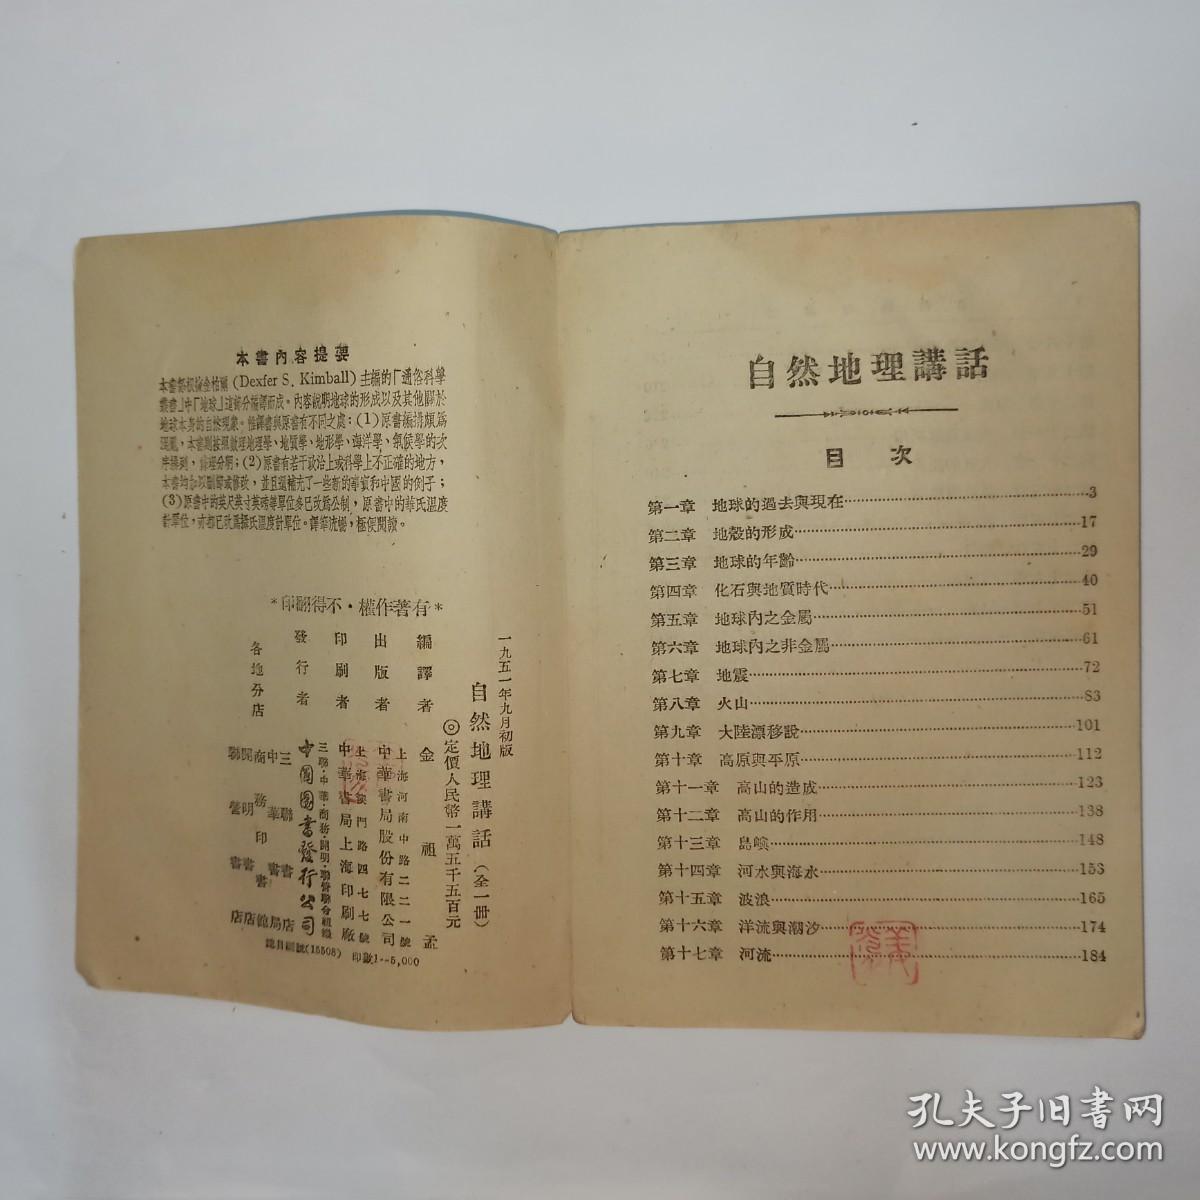 本書內容提要
本書係根據金柏爾 (Dexfer S. Kimball) 主編的「通俗科學
叢書」中「地球」這部分編譯而成。內容說明地球的形成以及其他關於
地球本身的自然現象。惟譯書與原書有不同之處：(1)原書編排頗爲
混亂，本書則按照數理地理學、地質學、地形學、海洋學、氣候學的次
序排列，條理分明；(2)原書有若干政治上或科學上不正確的地方，
本書均加以刪節或修改，並且還補充了一些新的事實和中國的例子；
(3)原書中的英尺英寸英磅等單位多已改爲公制，原書中的華氏溫度
計單位，亦都已改爲攝氏溫度計單位。譯筆流暢，極便閱讀。
*有著作權・不得翻印*
一九五一年九月初版
自然地理講話（全一冊）
◎定價人民幣一萬五千五百元
編譯者 金祖孟
出版者 中華書局股份有限公司
上海河南中路二二一號
印刷者 中華書局上海印刷廠
上海澳門路四七七號
發行者 中國圖書發行公司
三聯・中華・商務・開明・聯營聯合組織
各地分店
三聯書店
中華書局
商務印書館
開明書店
聯營書店
總目編號(15508) 印數1—5,000
自然地理講話
目次
第一章 地球的過去與現在 3
第二章 地殼的形成 17
第三章 地球的年齡 29
第四章 化石與地質時代 40
第五章 地球內之金屬 51
第六章 地球內之非金屬 61
第七章 地震 72
第八章 火山 83
第九章 大陸漂移說 101
第十章 高原與平原 112
第十一章 高山的造成 123
第十二章 高山的作用 138
第十三章 島嶼 148
第十四章 河水與海水 153
第十五章 波浪 165
第十六章 洋流與潮汐 174
第十七章 河流 184
孔夫子旧书网
www.kongfz.com